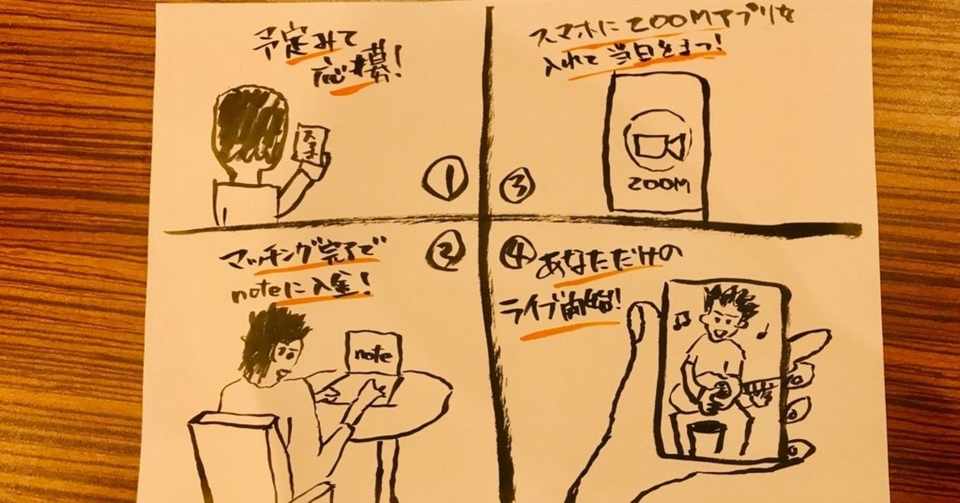 予定みて
応募!
①
マッチング完了で
noteに入金!
②
note
スマホにZOOMアプリを
入れて当日をまつ!
③
ZOOM
④
あなただけの
ライブ開始!